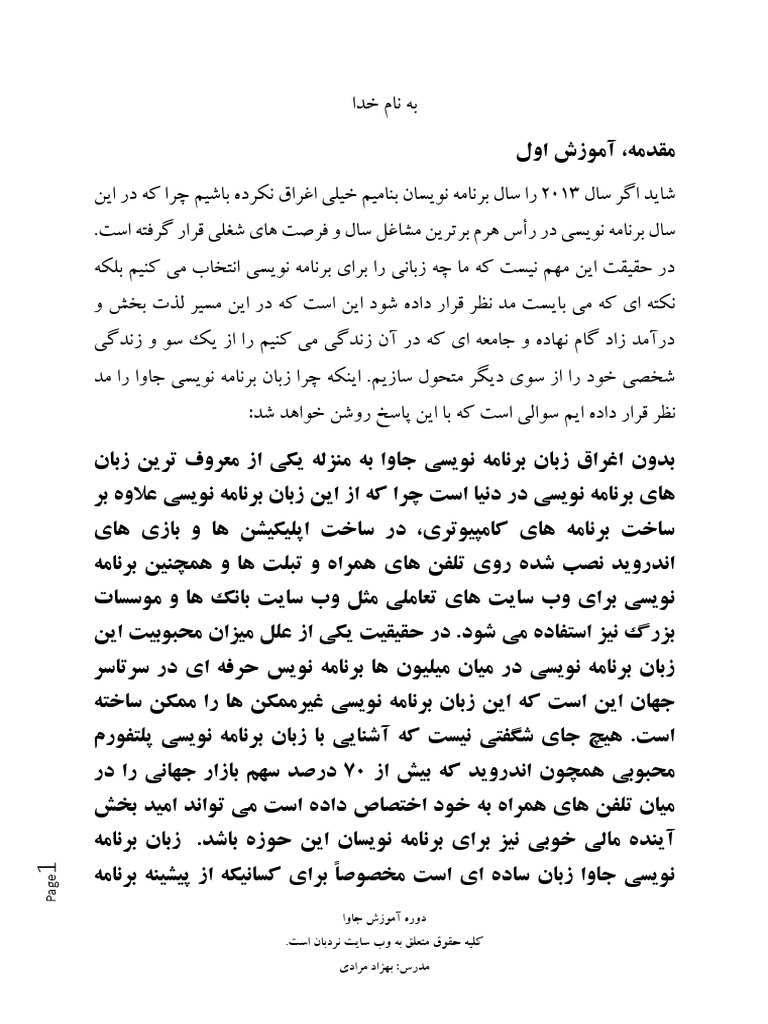 به نام خدا
مقدمه، آموزش اول
شاید اگر سال ۲۰۱۳ را سال برنامه نویسان بنامیم خیلی اغراق نکرده باشیم چرا که در این
سال برنامه نویسی در رأس هرم برترین مشاغل سال و فرصت های شغلی قرار گرفته است.
در حقیقت این مهم نیست که ما چه زبانی را برای برنامه نویسی انتخاب می کنیم بلکه
نکته ای که می بایست مد نظر قرار داده شود این است که در این مسیر لذت بخش و
درآمد زاد گام نهاده و جامعه ای که در آن زندگی می کنیم را از یک سو و زندگی
شخصی خود را از سوی دیگر متحول سازیم. اینکه چرا زبان برنامه نویسی جاوا را مد
نظر قرار داده ایم سوالی است که با این پاسخ روشن خواهد شد:
بدون اغراق زبان برنامه نویسی جاوا به منزله یکی از معروف ترین زبان
های برنامه نویسی در دنیا است چرا که از این زبان برنامه نویسی علاوه بر
ساخت برنامه های کامپیوتری، در ساخت اپلیکیشن ها و بازی های
اندروید نصب شده روی تلفن های همراه و تبلت ها و همچنین برنامه
نویسی برای وب سایت های تعاملی مثل وب سایت بانک ها و موسسات
بزرگ نیز استفاده می شود. در حقیقیت یکی از علل میزان محبوبیت این
زبان برنامه نویسی در میان میلیون ها برنامه نویس حرفه ای در سرتاسر
جهان این است که این زبان برنامه نویسی غیرممکن ها را ممکن ساخته
است. هیچ جای شگفتی نیست که آشنایی با زبان برنامه نویسی پلتفورم
محبوبی همچون اندروید که بیش از ۷۰ درصد سهم بازار جهانی را در
میان تلفن های همراه به خود اختصاص داده است می تواند امید بخش
آینده مالی خوبی نیز برای برنامه نویسان این حوزه باشد. زبان برنامه
نویسی جاوا زبان ساده ای است مخصوصاً برای کسانیکه از پیشینه برنامه
Page1
دوره آموزش جاوا
کلیه حقوق متعلق به وب سایت نردبان است.
مدرس: بهزاد مرادی